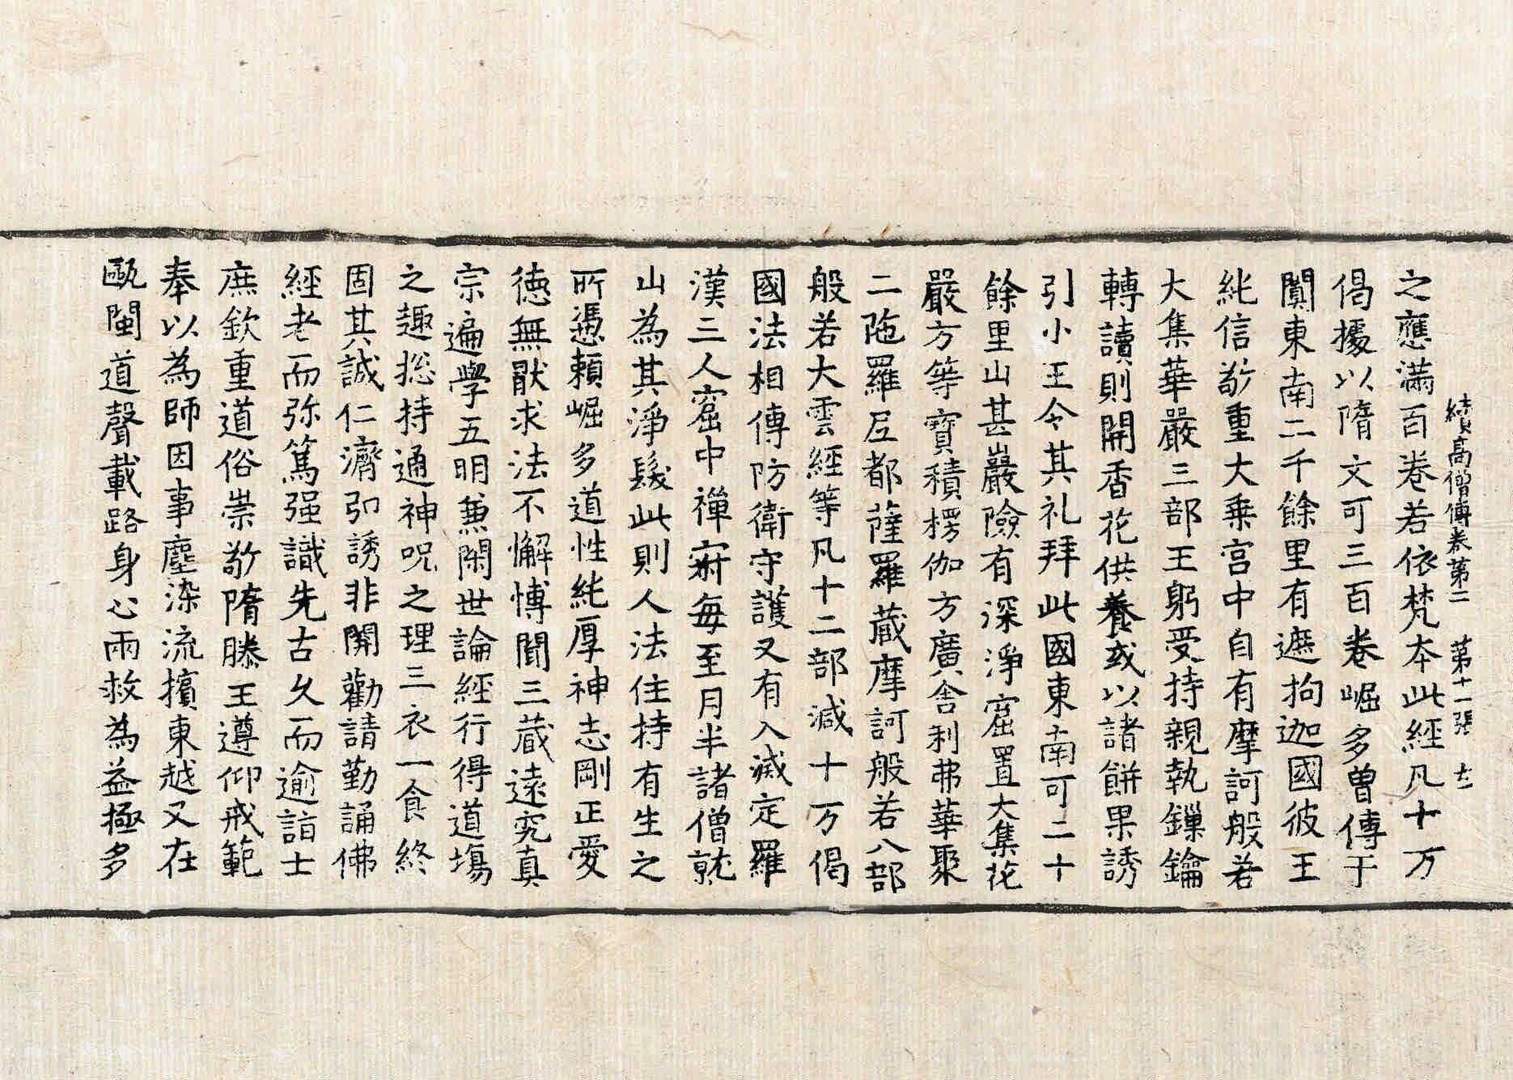 之應滿百卷若依梵本此經凡十万
續高僧傳卷第二 第十一張 𠀋
偈據以隋文可三百卷崛多曽傳于
闐東南二千餘里有遮拘迦國彼王
純信敬重大乗宫中自有摩訶般若
大集華嚴三部王躬受持親執鏁鑰
轉讀則開香花供養或以諸餅果誘
引小王令其礼拜此國東南可二十
餘里山甚巖險有深淨窟置大集花
嚴方等寶積楞伽方廣舍利弗華聚
二陁羅尼都薩羅蔵摩訶般若八部
般若大雲經等凡十二部減十万偈
國法相傳防衛守護又有入滅定羅
漢三人窟中禪寂每至月半諸僧就
山為其淨髮此則人法住持有生之
所憑賴崛多道性純厚神志剛正愛
徳無猒求法不懈博聞三蔵遠究真
宗遍學五明兼閑世論經行得道場
之趣揔持通神呪之理三衣一食終
固其誠仁濟弘誘非關勸請勤誦佛
經老而弥篤强識先古久而逾詣士
庶欽重道俗崇敬隋滕王遵仰戒範
奉以為師因事塵染流擯東越又在
甌閩道聲載路身心兩救為益極多